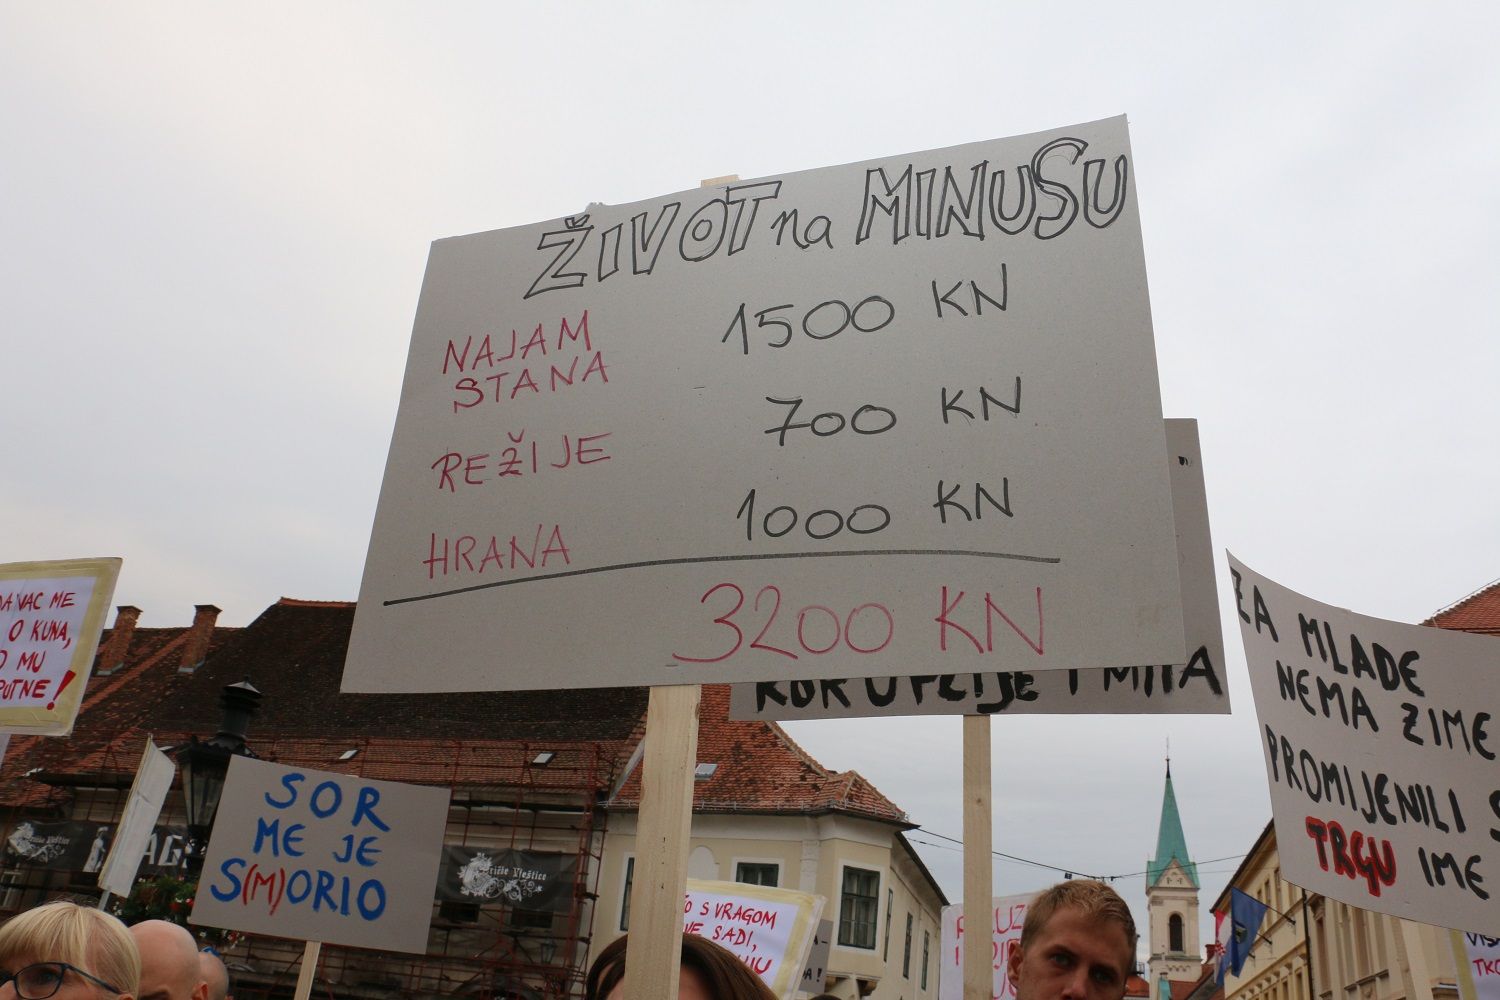 ŽIVOT na MINUSU
NAJAM STANA 1500 KN
REŽIJE 700 KN
HRANA 1000 KN
3200 KN
KORUPCIJE I MITA
ME
O KUNA,
MU
SOR
ME JE
S(M)ORIO
S VRAGOM
SADI,
ZA MLADE
NEMA ZIME
PROMIJENILI
TRGU IME